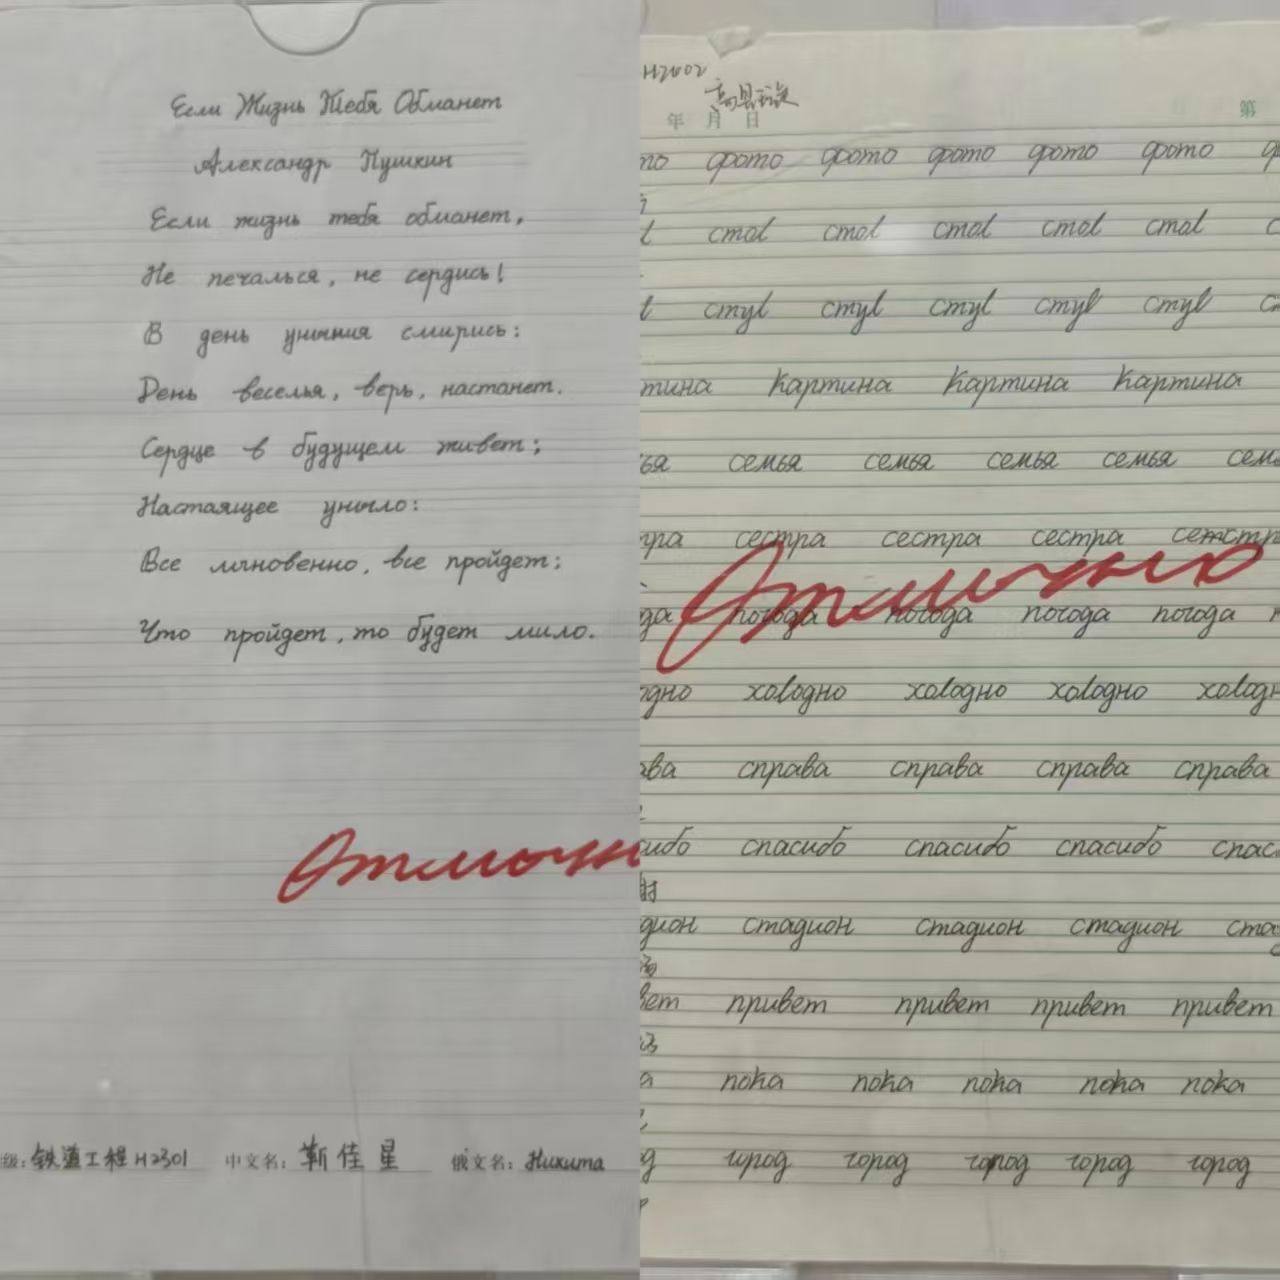 Если Жизнь Тебя Обманет
Александр Пушкин
Если жизнь тебя обманет,
Не печалься, не сердись!
В день уныния смирись:
День веселья, верь, настанет.
Сердце в будущем живет;
Настоящее уныло:
Все мгновенно, все пройдет;
Что пройдет, то будет мило.
Отличн
级: 铁道工程H2301 中文名: 靳佳星 俄文名: Никита
H2002
年 月 日 第
то фото фото фото фото фото ф
стол стол стол стол стол с
стул стул стул стул стул ст
тина картина картина картина
ья семья семья семья семья сем
тра сестра сестра сестра сестр
Отлично
да погода погода погода погода
одно холодно холодно холодно холодн
ава справа справа справа справа
сибо спасибо спасибо спасибо спас
дион стадион стадион стадион ста
вет привет привет привет привет
а пока пока пока пока пока
д город город город город город